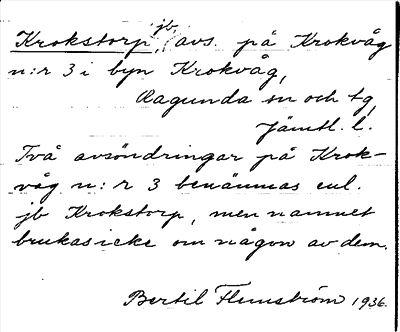 Krokstorp, jb, avs. på Krokvåg
n:r 3 i byn Krokvåg,
Ragunda sn och tg,
Jämtl. l.
Två avsöndringar på Krok-
våg n:r 3 benämnas enl.
jb Krokstorp, men namnet
brukas icke om någon av dem.
Bertil Flemström 1936.